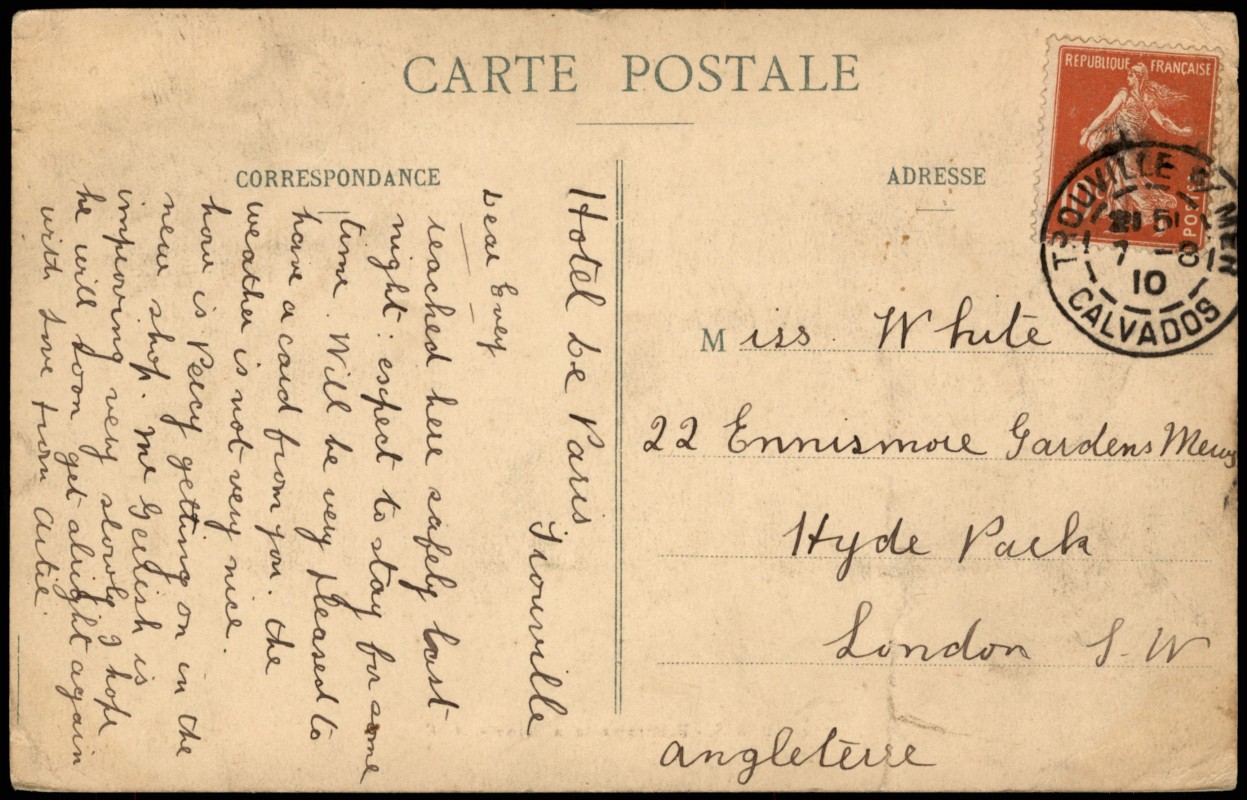 CARTE POSTALE
CORRESPONDANCE
ADRESSE
REPUBLIQUE FRANÇAISE
POSTES
TROUVILLE S/ MER
CALVADOS
7 - 8
10
Hotel de Paris
Trouville
Dear Evey
reached here safely last
night: expect to stay for some
time. Will be very pleased to
have a card from you. the
weather is not very nice.
how is Percy getting on in the
new shop. Mr Gerlish is
improving very slowly I hope
he will soon get alright again
with love from Artie.
Miss White
22 Ennismore Gardens Mews
Hyde Park
London S.W
Angleterre